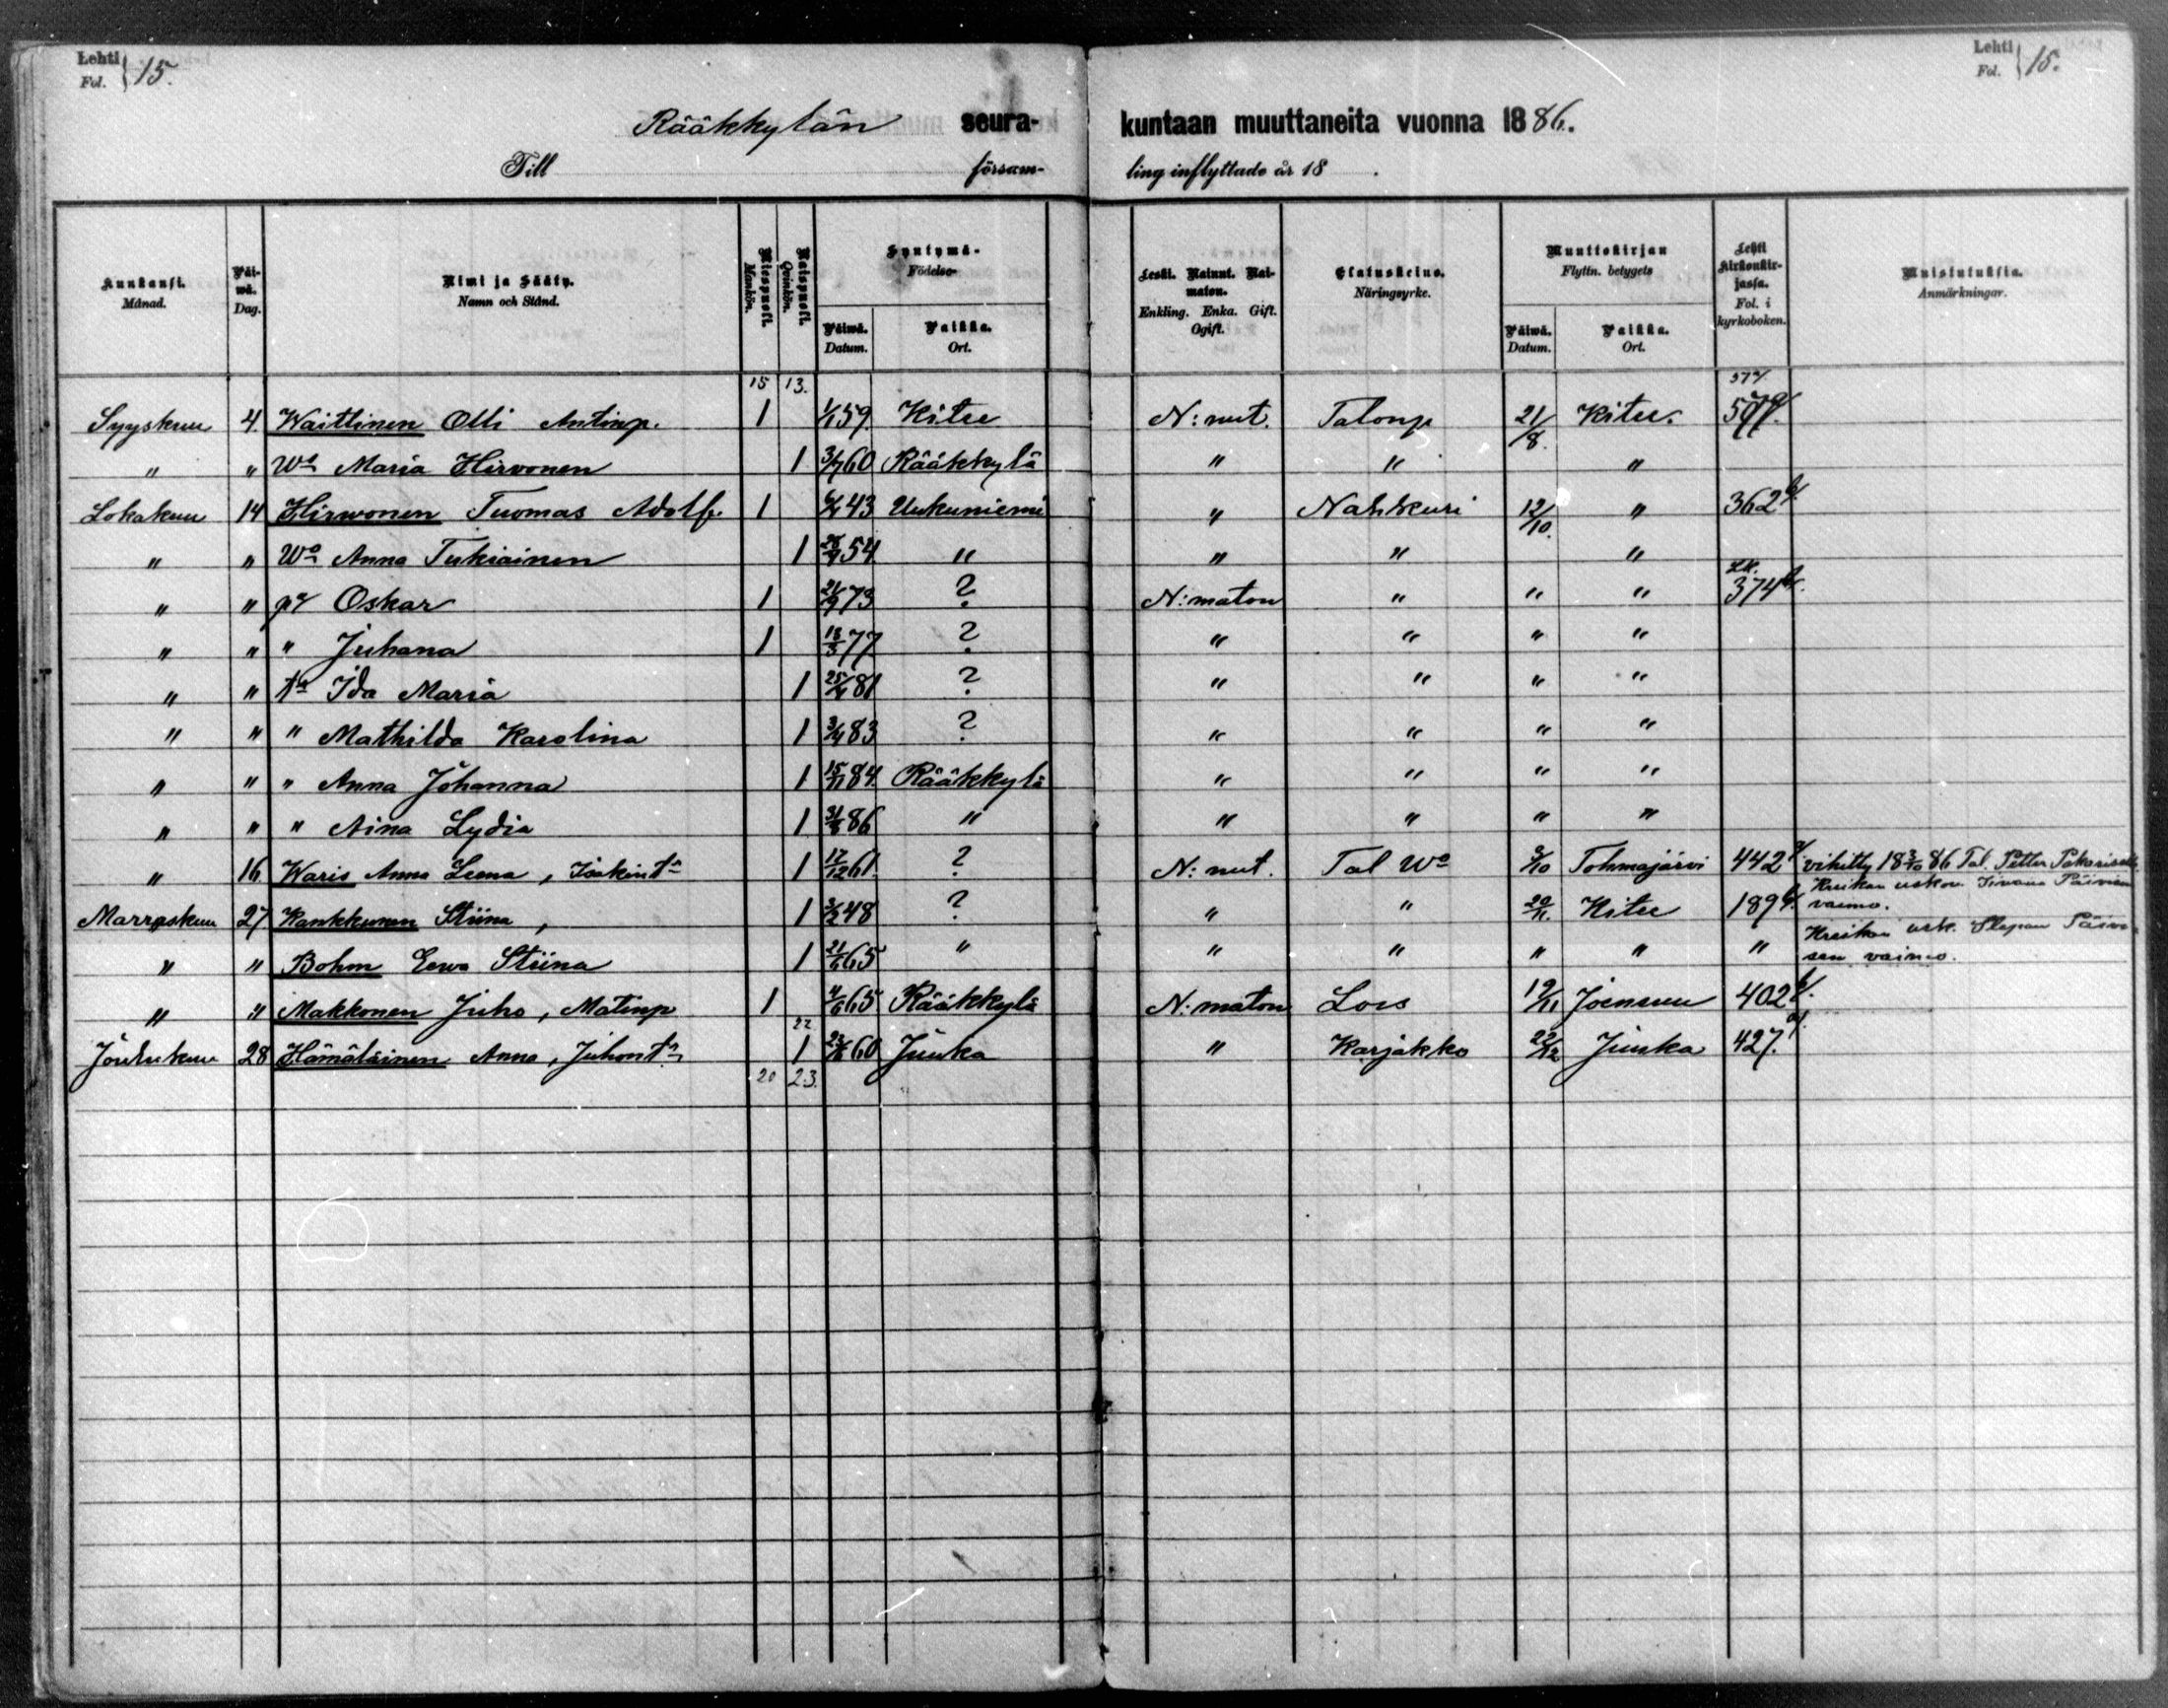 Lehti Fol. } 15.
Lehti Fol. } 15.
Rääkkylän seurakuntaan muuttaneita vuonna 1886.
Till församling inflyttade år 18 .
Kuukausi. Månad. Päiwä. Dag. Nimi ja Sääty. Namn och Stånd. Miespuoli. Mankön. Naispuoli. Qvinkön. Syntymä- Födelse- Päiwä. Datum. Paikka. Ort. Leski. Nainut. Naimaton. Enkling. Enka. Gift. Ogift. Elatuskeino. Näringsyrke. Muuttokirjan Flyttn. betygets Päiwä. Datum. Paikka. Ort. Lehti kirkonkirjassa. Fol. i kyrkoboken. Muistutuksia. Anmärkningar.
15 13.
Syyskuu 4. Waittinen Olli Antinp. 1 1/1 59. Kitee N: nut. Talonp 21/8. Kitee.
" " Wo Maria Hirvonen 1 3/7 60 Rääkkylä " " "
Lokakuu 14 Hirwonen Tuomas Adolf. 1 43 Uukuniemi " Nahkuri 12/10. " 362
" " Wo Anna Tukiainen 1 54 " " " "
" " pa Oskar 1 21/9 73 ? N: maton " " " 374
" " " Juhana 1 18/3 77 ? " " " "
" " tr Ida Maria 1 25/4 81 ? " " " "
" " " Mathilda Karolina 1 3/4 83 ? " " " "
" " " Anna Johanna 1 15/11 84. Rääkkylä " " " "
" " " Aina Lydia 1 86 " " " " "
" 16 Waris Anna Leena, Isakint 1 17/12 61. ? N: nut. Tal Wo 3/10 Tohmajärvi 442 vihitty 18 3/10 86 Tal. Petter Pakariselle
Marraskuu 27 Kankkunen Stiina, 1 3/2 48 ? " " 20/11. Kitee 189 Kreikan uskon Iivana Päivisen vaimo.
" " Bohm Eewa Stiina 1 21/6 65 " " " " " " Kreikan usk. Stepan Päivisen vaimo.
" " Makkonen Juho, Matinp 1 4/6 65 Rääkkylä N: maton Lois 19/11 Joensuu 402
22
Joulukuu 28 Hämäläinen Anna, Juhont 1 60 Juuka " Karjakko 22/12 Juuka 427.
20 23.